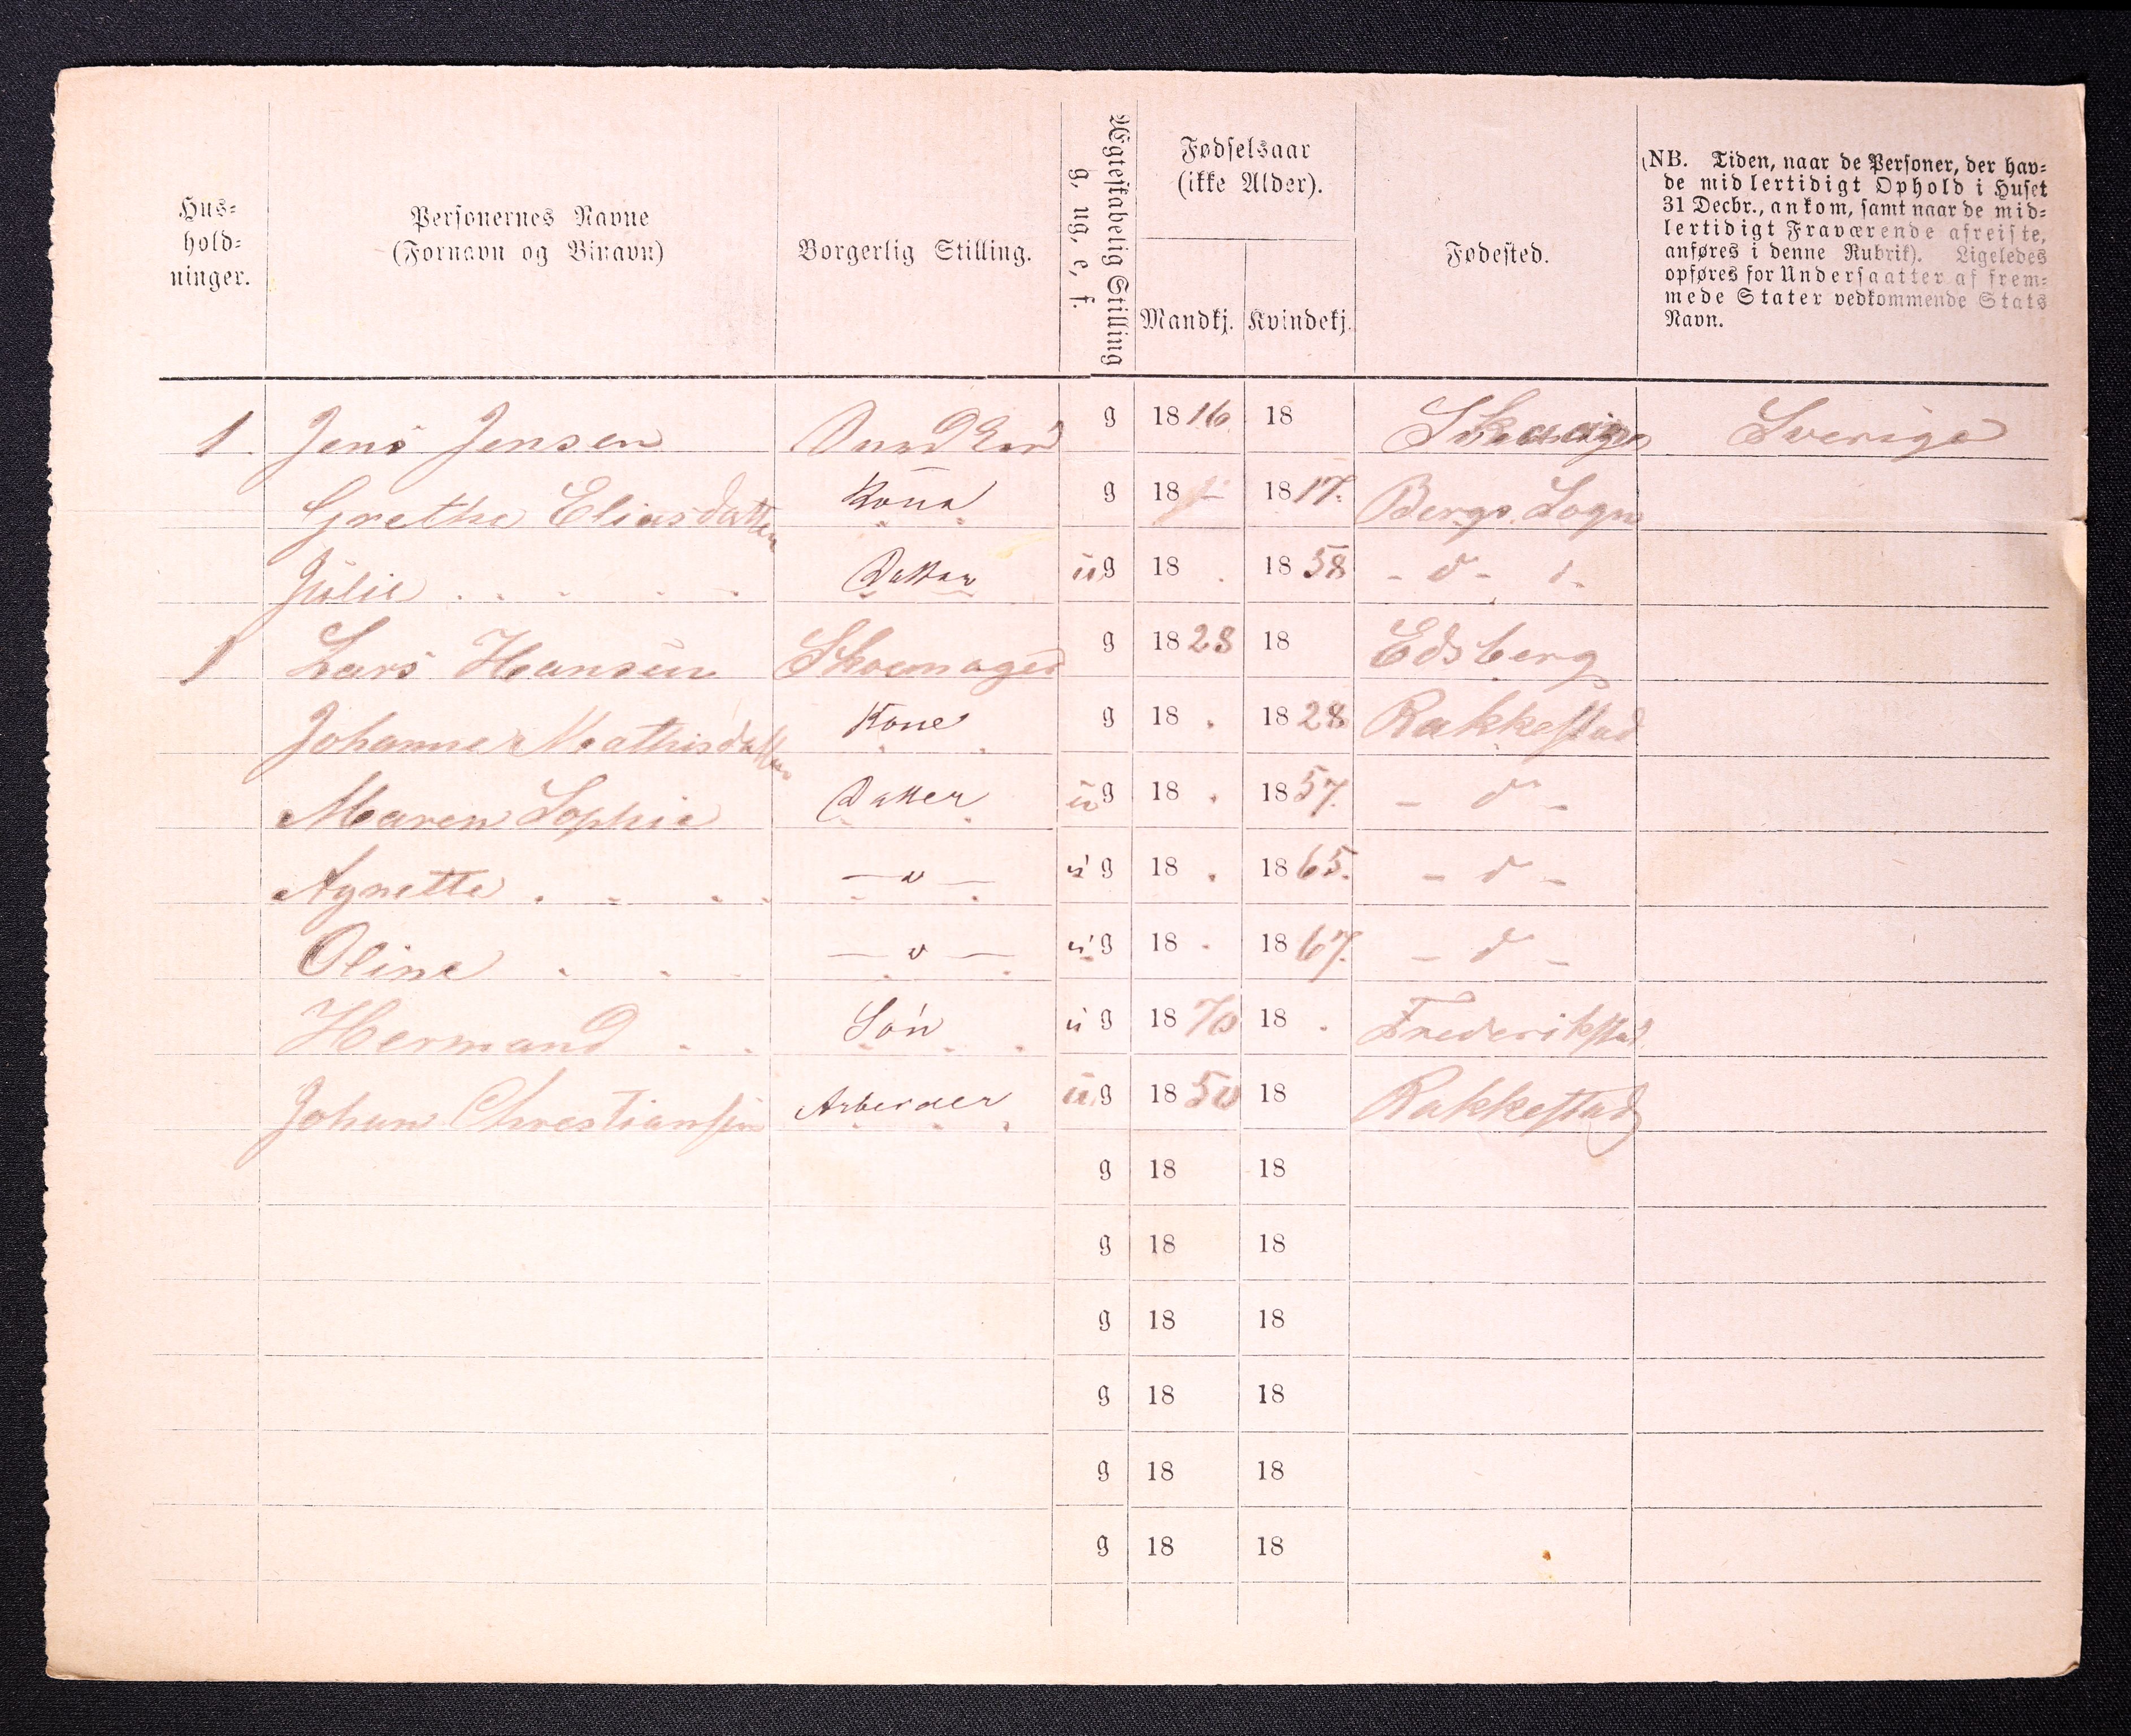 Hus-
hold-
ninger.
Personernes Navne
(Fornavn og Binavn)
Borgerlig Stilling.
Ægteskabelig Stilling
g, ug, e, f.
Fødselsaar
(ikke Alder).
Mandkj. Kvindekj.
Fødested.
(NB. Tiden, naar de Personer, der hav-
de midlertidigt Ophold i Huset
31 Decbr., ankom, samt naar de mid-
lertidigt Fraværende afreiste,
anføres i denne Rubrik). Ligeledes
opføres for Undersaatter af frem-
mede Stater vedkommende Stats
Navn.
1 Jens Jensen g 1816 18 Sverige
Grethe Eliasdatter Kone g 18 1817. Bergs Sogn
Julie Datter ug 18 1858 - d -
1 Lars Hansen Skoemager g 1828 18 Edsberg
Johanne Mathisdatter Kone g 18 1828 Rakkestad
Maren Sophie Datter ug 18 1857. - d -
Agnette - d - ug 18 1865. - d -
Oline - d - ug 18 1867. - d -
Hermand Són ug 1870 18 Frederikstad
Johan Christiansen Arbeider ug 1850 18 Rakkestad
g 18 18
g 18 18
g 18 18
g 18 18
g 18 18
g 18 18